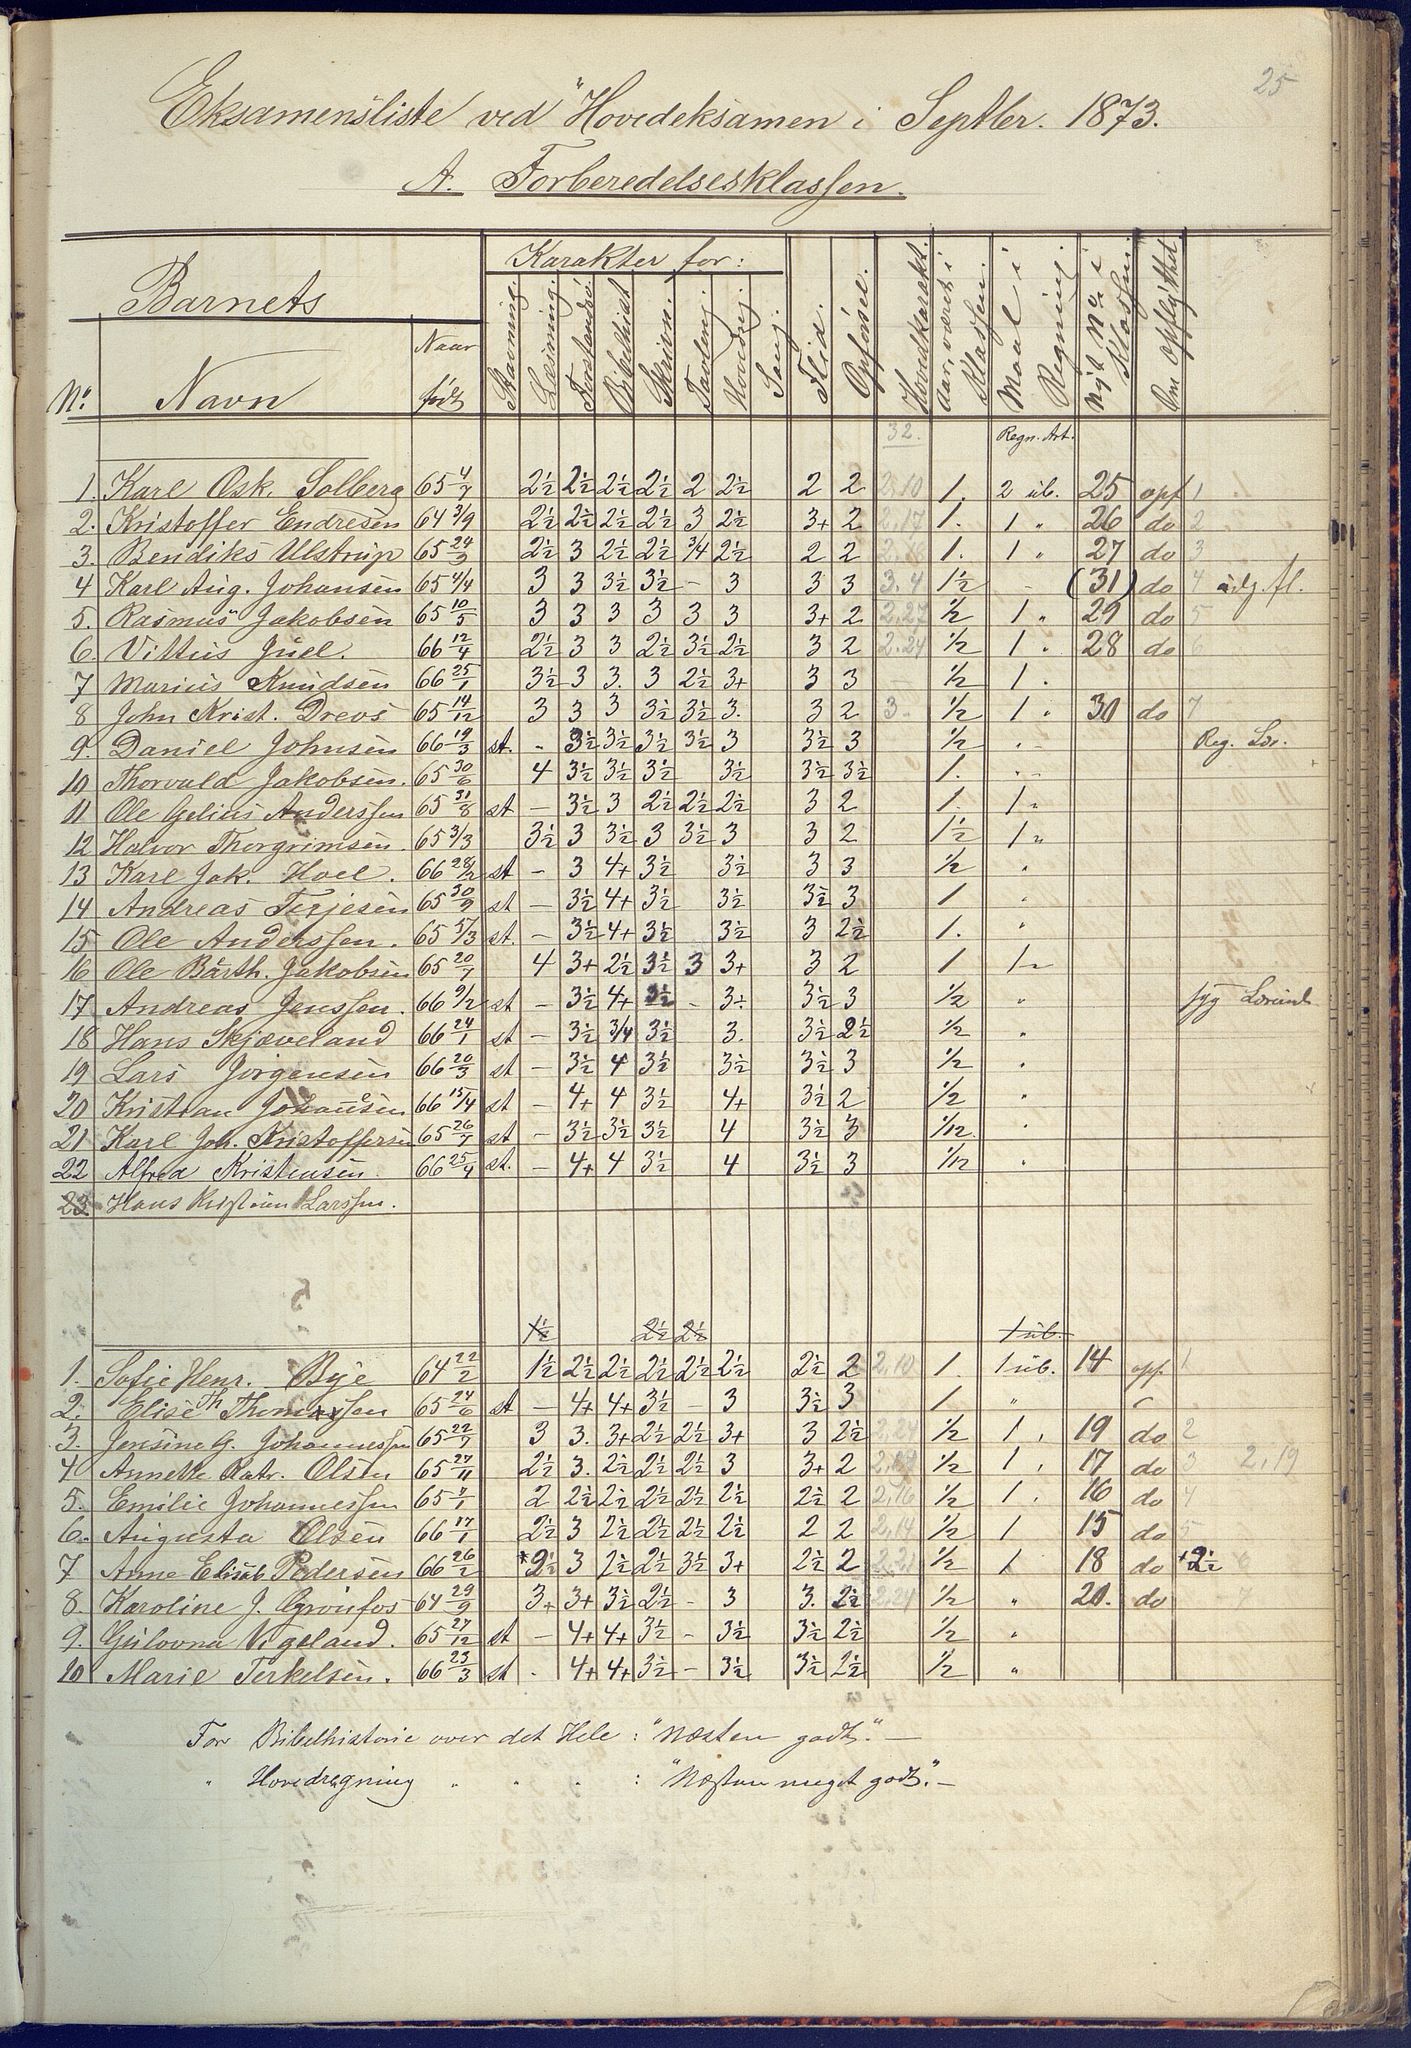 25
Eksamensliste ved Hovedeksamen i Septbr. 1873.
A. Forberedelsesklassen.
Barnets
Karakter for:
No. Navn Naar født Stavning. Læsning. Forstandsö. Bibelhist Skrivn. Tavlregn. Hovedregn. Sang. Flid. Opførsel. Hovedkarakt. Aar, været i Klassen. Maal i Regning. Nyt No. i Klassen. Om opflyttet
32. Regn. Art.
1. Karl Osk. Solberg 65 4/7 2½ 2½ 2½ 2½ 2 2½ 2 2 2,10 1. 2 üb. 25 opf 1
2. Kristoffer Endresen 64 3/9 2½ 2½ 2½ 2½ 3 2½ 3+ 2 2,17 1. 1 " 26 do 2
3. Bendiks Ulstrup 65 24/9 2½ 3 2½ 2½ 3/4 2½ 2 2 1. 1 " 27 do 3
4 Karl Aug. Johansen 65 4/4 3 3 3½ 3½ - 3 3 3 3.4 1½ (31) do 4
5. Rasmus Jakobsen 65 10/5 3 3 3 3 3 3 3+ 2 2,27 ½ 1 " 29 do 5
6. Vittus Juel. 66 12/4 2½ 3 3 2½ 3½ 2½ 3 2 2.24 ½ 1 " 28 do 6
7 Marius Knudsen 66 25/1 3½ 3 3. 3 2½ 3+ 3 3 ½ 1 "
8 John Krist. Drevs 65 14/12 3 3 3 3½ 3½ 3. 3 2 3. ½ 1 " 30 do 7
9. Daniel Johnsen 66 19/3 st. - 3½ 3½ 3½ 3½ 3 3½ 3 ½ " Reg. Læs.
10 Thorvald Jakobsen. 65 30/6 4 3½ 3½ 3½ 3½ 3½ 3½ 1. "
11 Ole Gelius Anderssen 65 31/8 st - 3½ 3 2½ 2½ 2½ 3 2 1. 1 "
12 Halvor Thorgrimsen. 65 3/3 3½ 3 3½ 3 3½ 3 3 2 1½ 1 "
13 Karl Jak. Hoel. 66 28/2 st - 3 4+ 3½ 3½ 3 3 ½ "
14 Andreas Terjesen 65 30/9 st - 3½ 4+ 3½ 3½ 3½ 3 1 "
15 Ole Anderssen. 65 5/3 st. - 3½ 4+ 3½ 3½ 3 2½ 1. "
16 Ole Barth. Jakobsen 65 20/7 4 3+ 2½ 3½ 3 3+ 3 2 1 1 "
17 Andreas Jenssen. 66 9/2 st - 3½ 4+ 3½ - 3+ 3½ 3 ½ "
18 Hans Skjæveland 66 24/1 st - 3½ 3/4 3½ 3. 3½ 2½ ½ "
19 Lars Jørgensen 66 20/3 st - 3½ 4 3½ 3½ 3½ 3 ½ "
20 Kristian Johansen 66 15/4 st - 4+ 4 3½ 4+ 3½ 2 ½ "
21 Karl Joh. Kristoffersen 65 26/7 st - 3½ 3½ 3½ 4 3½ 3 1/12 "
22 Alfred Kristensen 66 25/4 st. - 4+ 4 3½ 4 3½ 3 1/12 "
23 Hans Kristian Larssen.
1½ 2½ 2½ 1 üb.
1. Sofie Henr. Bye 64 22/2 1½ 2½ 2½ 2½ 2½ 2½ 2½ 2 2,10 1. 1 üb. 14 opf. 1
2. Elise Th Thomassen 65 24/6 st - 4+ 4+ 3½ - 3 3½ 3 1 "
3. Jensine G. Johannessen 65 22/7 3 3. 3+ 2½ 2½ 3+ 3 2½ 2,24 ½ 1 " 19 do 2
4 Annette Katr. Olsen 65 27/11 2½ 3. 2½ 2½ 2½ 3 3+ 2 ½ 1 " 17 do 3 2,19
5. Emilie Johannessen 2 2½ 2½ 2½ 2½ 2½ 2½ 2 2,16 ½ 1 " 16 do 4
6. Augusta Olsen 66 17/1 2½ 3 2½ 2½ 2½ 2½ 2 2 2,14 ½ 1 15 do 5
7 Anne Elisab Pedersen 66 26/2 *2½ 3 2½ 2½ 3½ 3+ 2½ 2 2,21 ½ 1 18 do *2½ 6
8. Karoline J. Grönfos 64 29/9 3+ 3+ 3½ 2½ - 3 3. 2½ 2,24 ½ " 20. do 7
9. Gulovna Vigeland. 65 27/12 st - 4+ 4+ 3½ - 3½ 3½ 2½ ½ "
10 Marie Terkelsen. 66 23/3 st - 4+ 4+ 3½ - 3½ 3½ 2½ ½ "
For Bibelhistorie over det Hele: "Næsten godt." —
" Hovedregning " " " : "Næsten meget godt." —